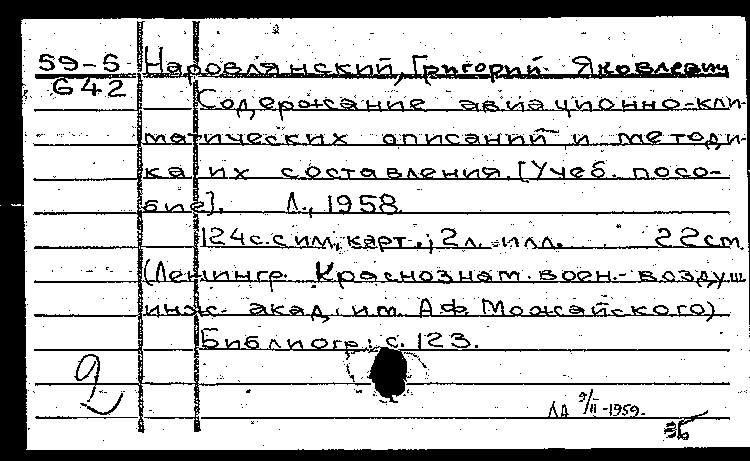 59-5 Наровлянский, Григорий Яковлевич
642
Содержание авиационно-кли-
матических описаний и методи-
ка их составления. [Учеб. посо-
бие]. Л., 1958.
124 с. с илл., карт.; 2 л. илл. 22 см.
(Ленингр. Краснознам. воен.-воздуш.
инж. акад. им. А.Ф. Можайского)
Библиогр.: с. 123.
2
9/II-1959.